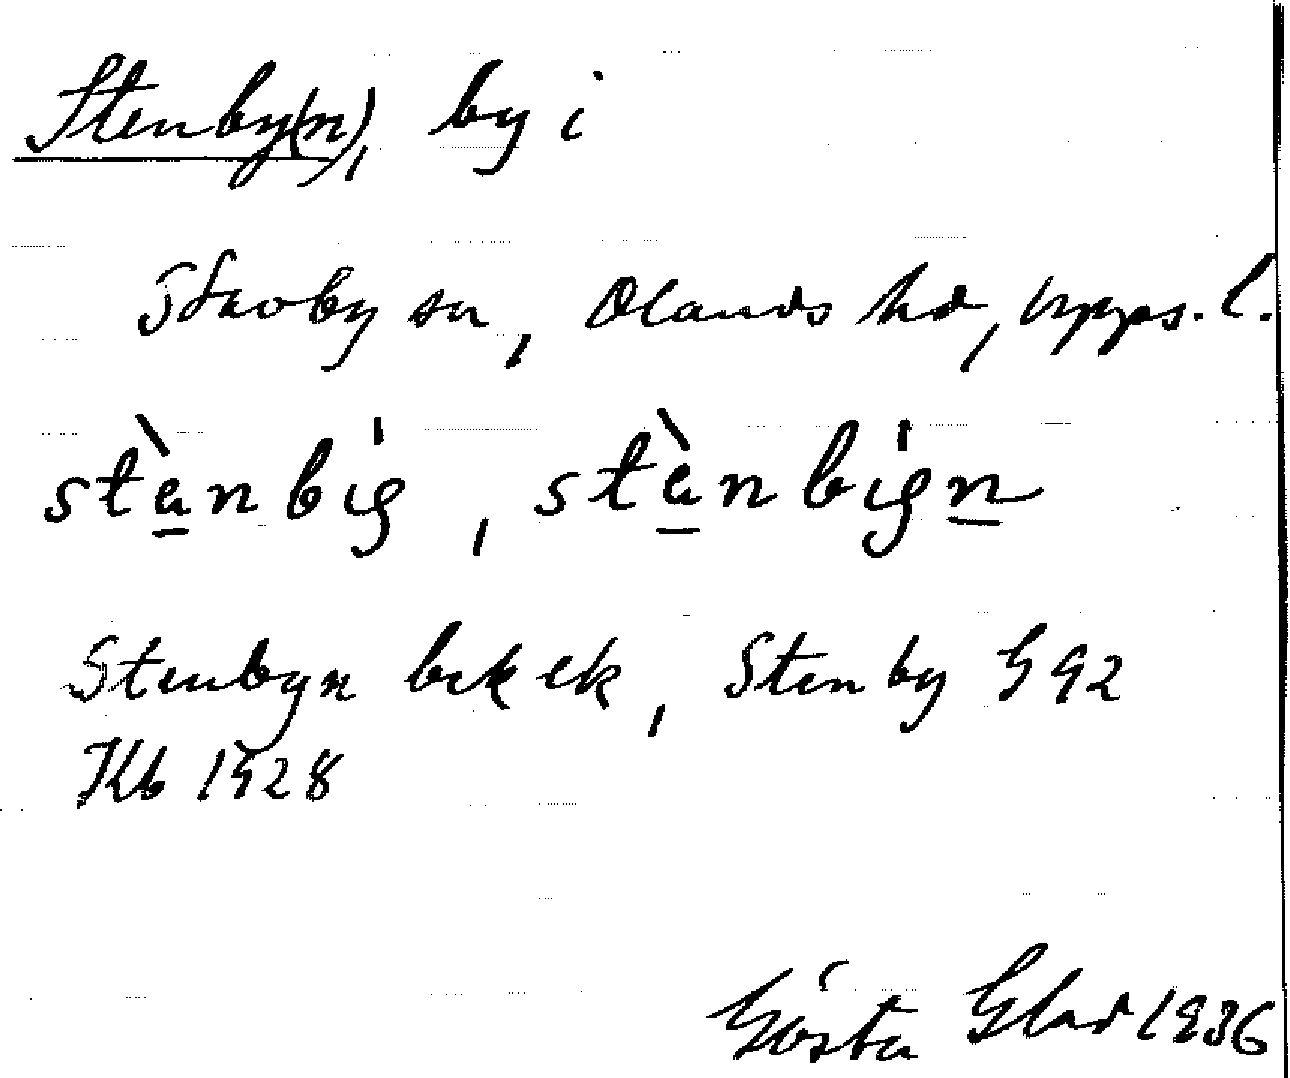 Stenby(n), by i
Skäoby sn, Olands hd, Upps. l.
stè̱nbig, stè̱nbigṉ
Stenbyn bek ek, Stenby G 92
Kb 1928
Gösta Glad 1936